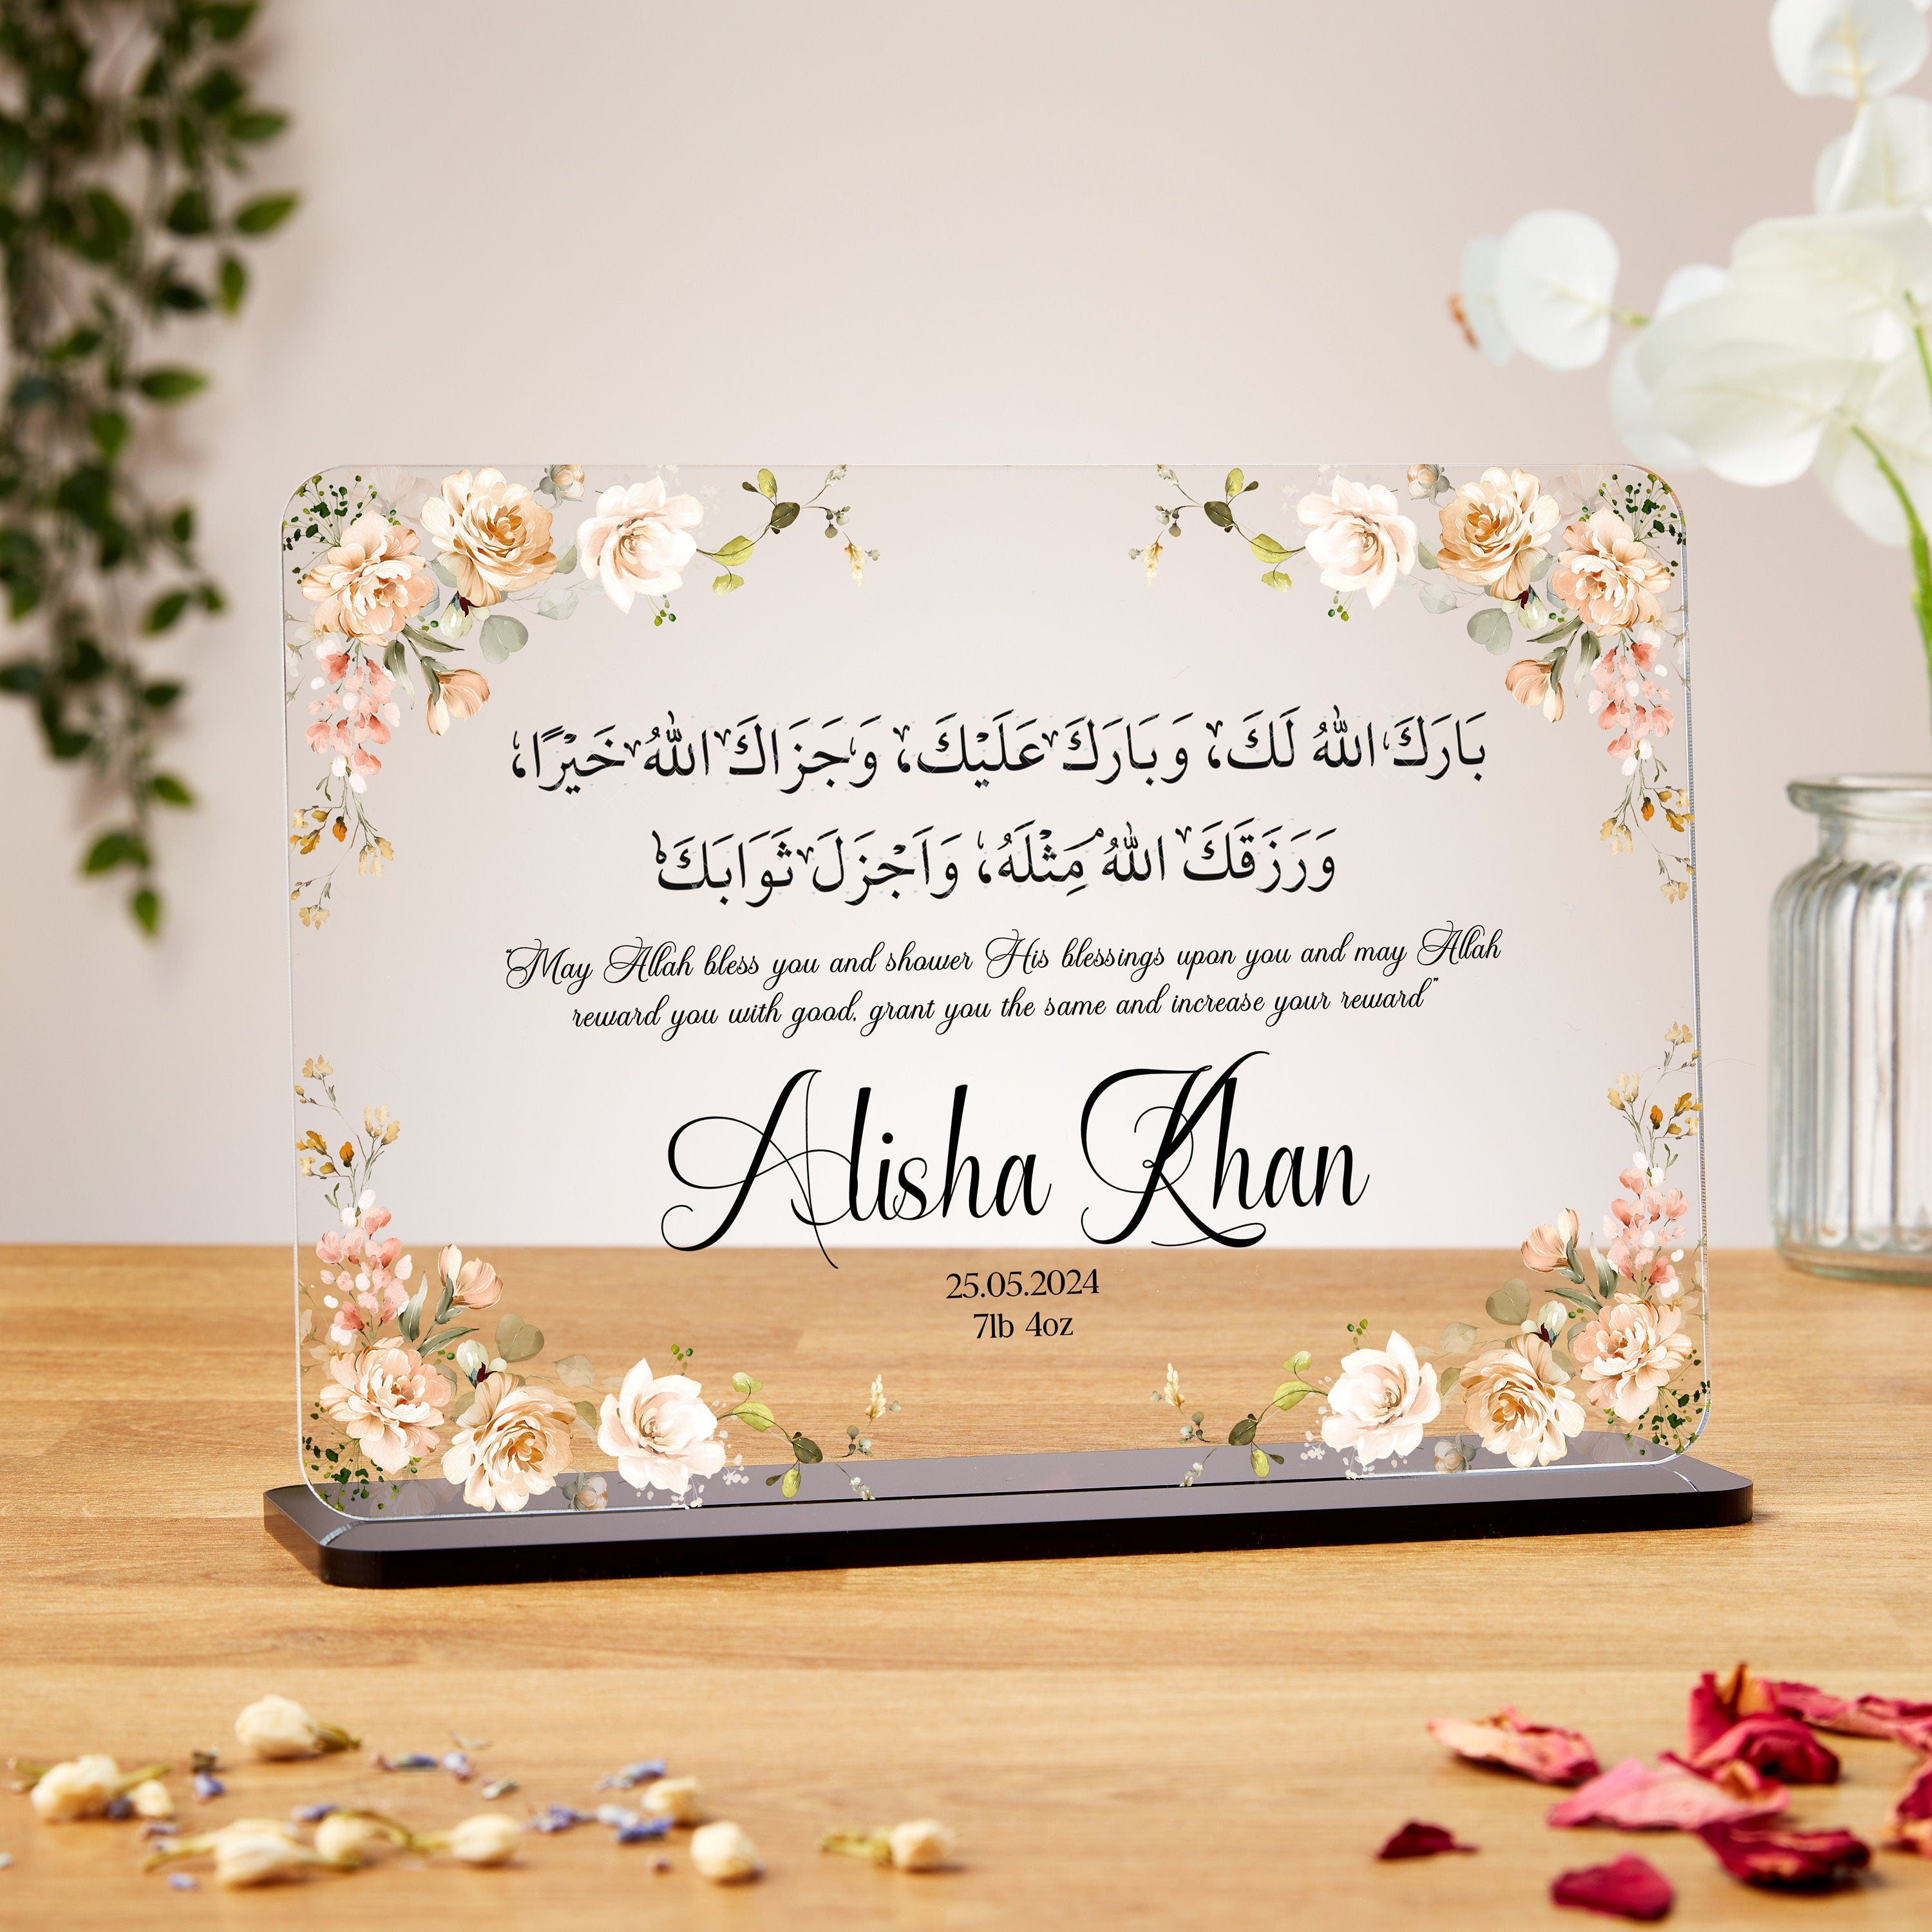 بَارَكَ اللهُ لَكَ، وَبَارَكَ عَلَيْكَ، وَجَزَاكَ اللهُ خَيْرًا،
وَرَزَقَكَ اللهُ مِثْلَهُ، وَاَجْزَلَ ثَوَابَكَ
“May Allah bless you and shower His blessings upon you and may Allah
reward you with good, grant you the same and increase your reward”
Alisha Khan
25.05.2024
7lb 4oz